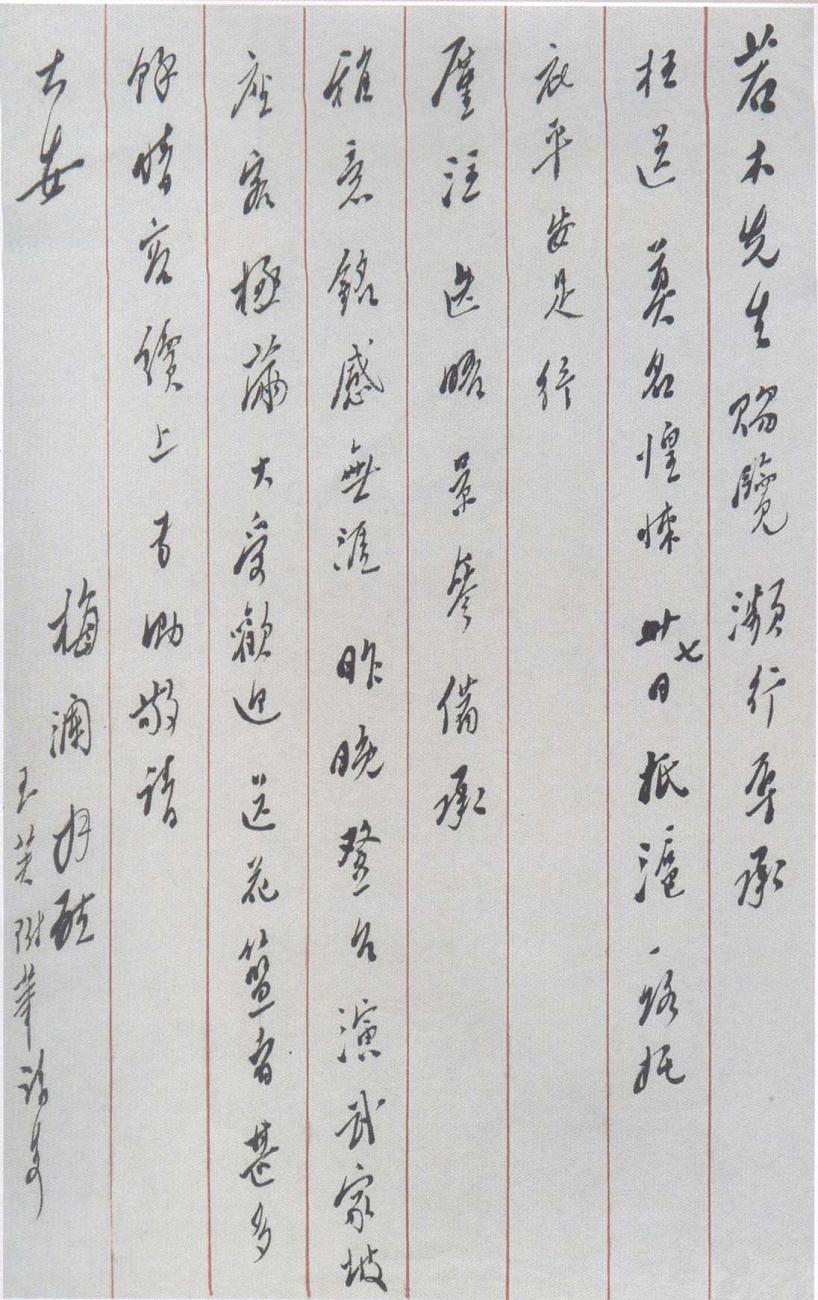 若木先生賜覽瀕行辱承
枉送莫名惶悚廿七日抵滬一路托
庇平安足紓
廑注迭晤景 備承
雅意銘感無涯昨晚登台演武家坡
座客極滿大受歡迎送花籃者甚多
餘情容續上書助敬請
大安
梅蘭 
玉芙附筆請安